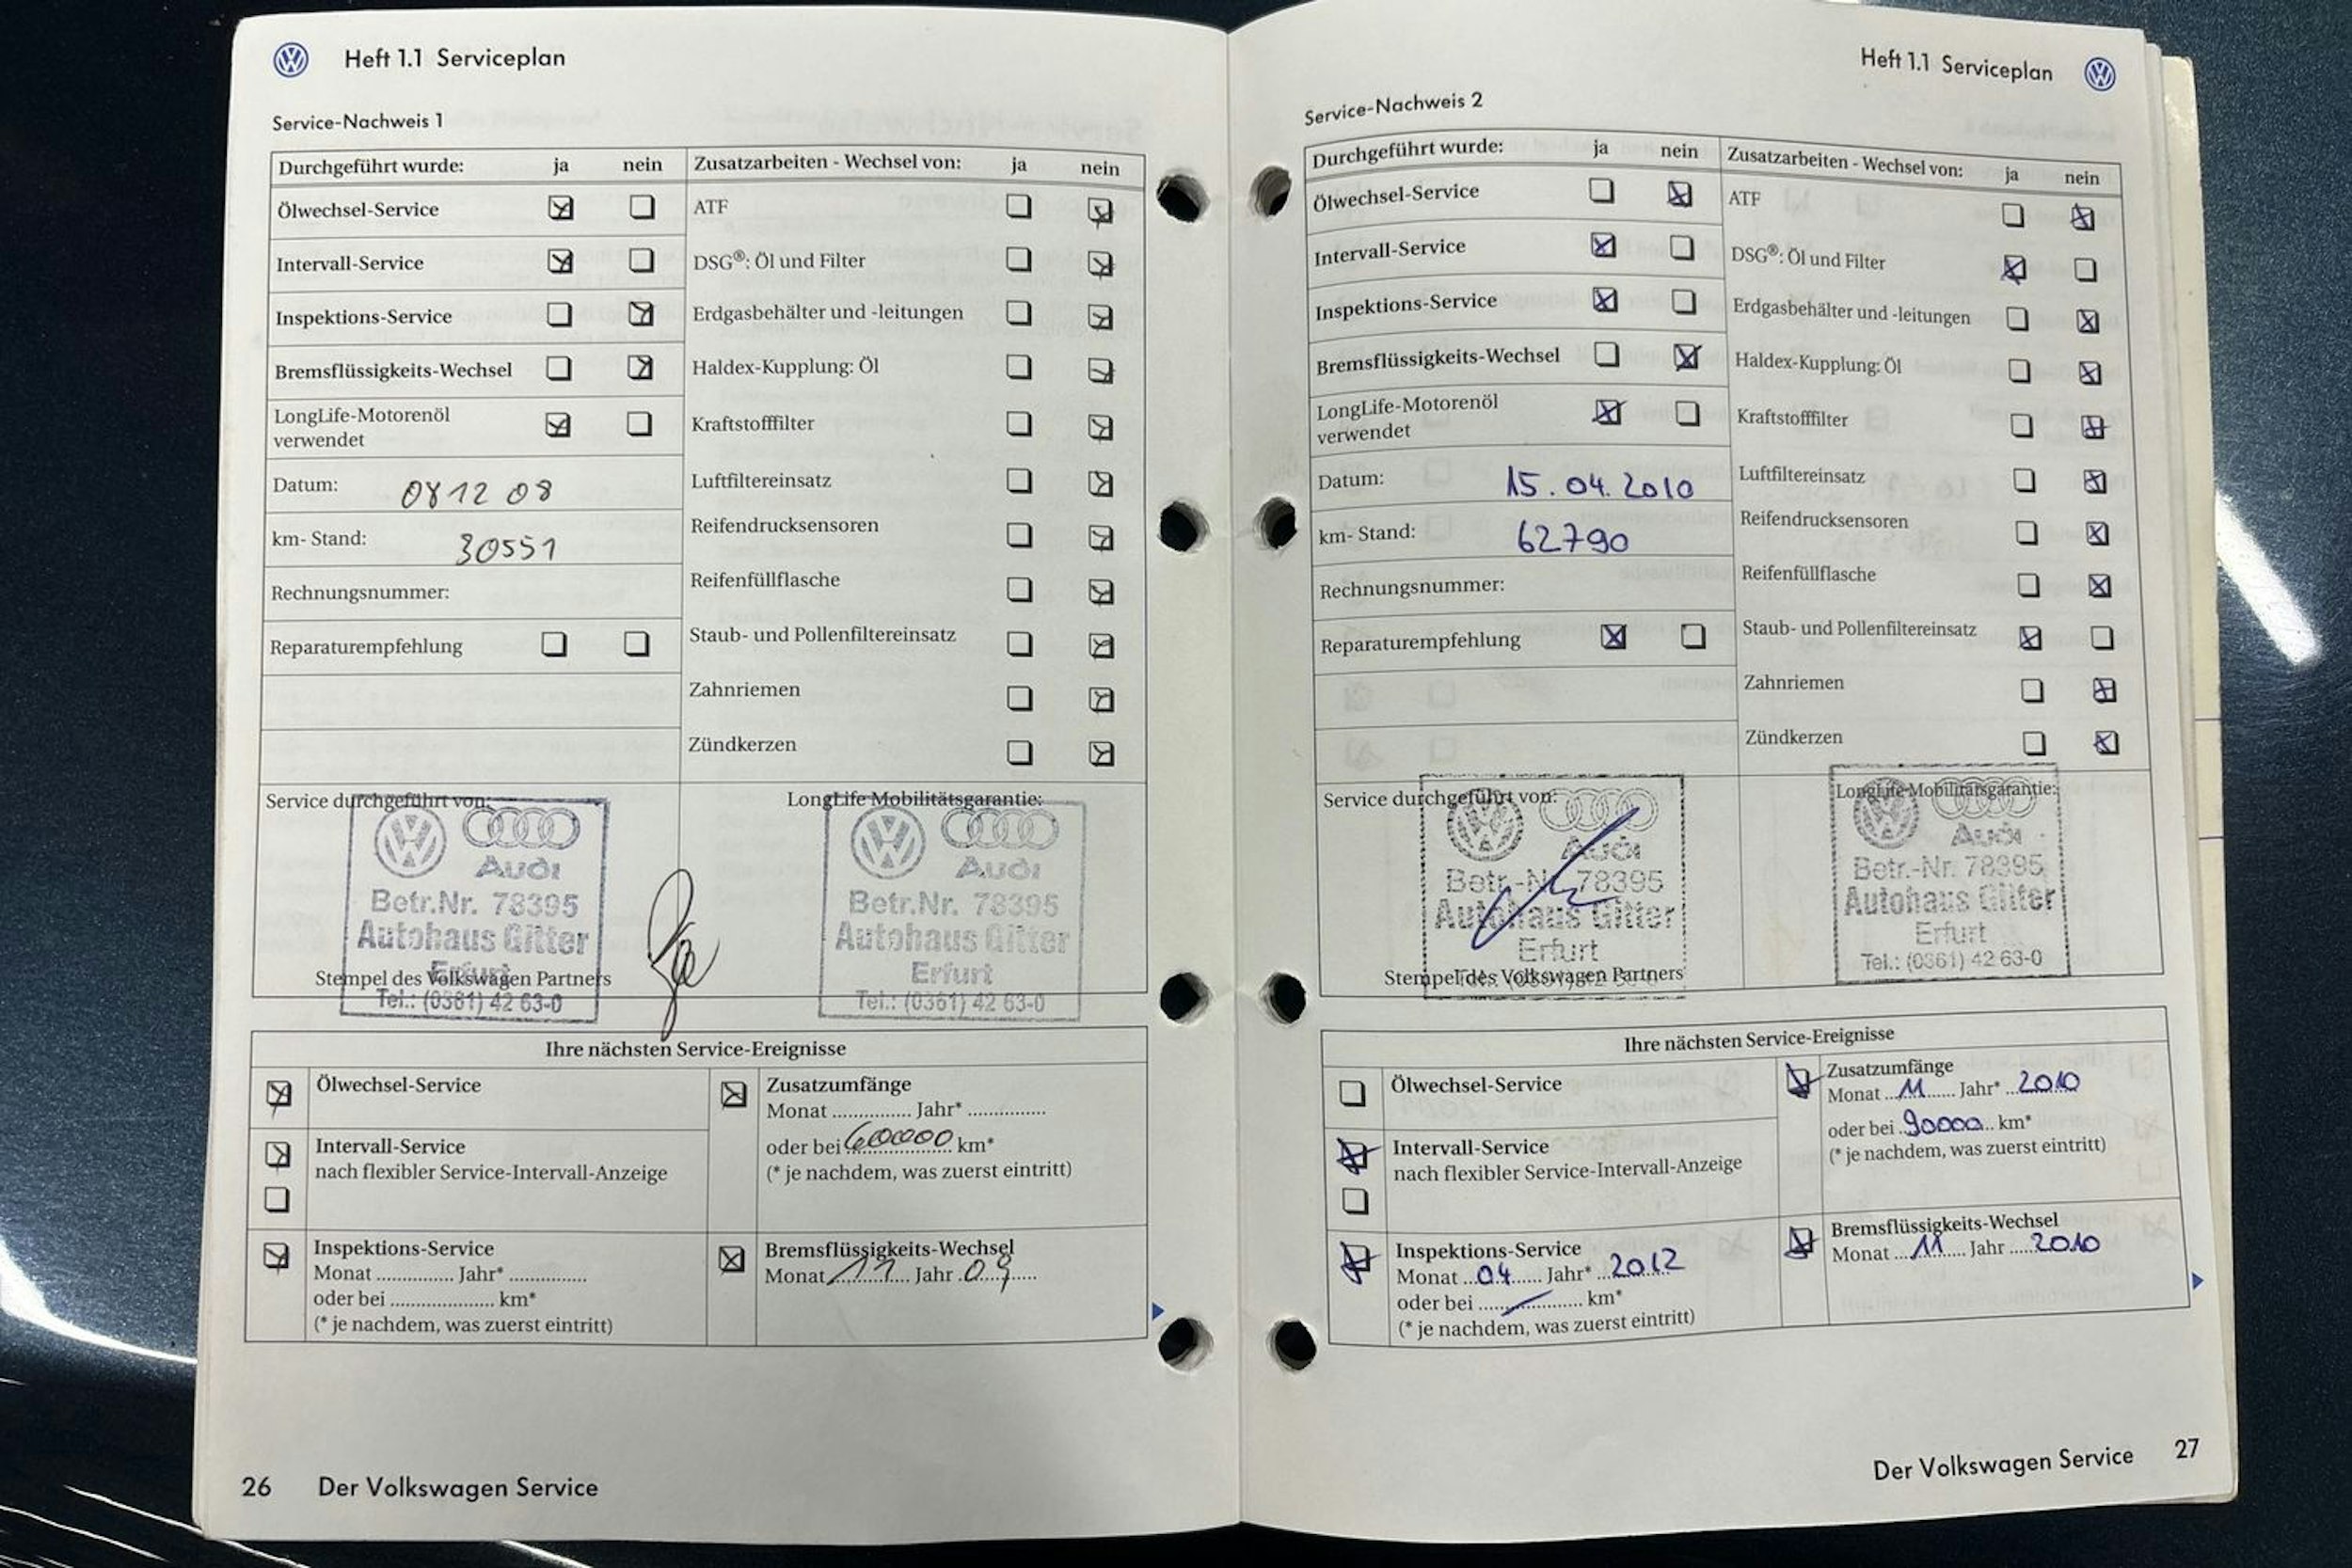 Heft 1.1 Serviceplan
Service-Nachweis 1
Durchgeführt wurde: ja nein Zusatzarbeiten - Wechsel von: ja nein
Ölwechsel-Service ATF
Intervall-Service DSG®: Öl und Filter
Inspektions-Service Erdgasbehälter und -leitungen
Bremsflüssigkeits-Wechsel Haldex-Kupplung: Öl
LongLife-Motorenöl Kraftstofffilter
verwendet
Datum: 08 12 08 Luftfiltereinsatz
km- Stand: 30551 Reifendrucksensoren
Rechnungsnummer: Reifenfüllflasche
Reparaturempfehlung Staub- und Pollenfiltereinsatz
Zahnriemen
Zündkerzen
Service durchgeführt von: LongLife Mobilitätsgarantie:
Audi Audi
Betr.Nr. 78395 Betr.Nr. 78395
Autohaus Gitter Autohaus Gitter
Erfurt Erfurt
Stempel des Volkswagen Partners
Tel.: (0361) 42 63-0 Tel.: (0361) 42 63-0
Ihre nächsten Service-Ereignisse
Ölwechsel-Service
Intervall-Service
nach flexibler Service-Intervall-Anzeige
Inspektions-Service
Monat ............... Jahr* ...............
oder bei .................... km*
(* je nachdem, was zuerst eintritt)
Zusatzumfänge
Monat ............... Jahr* ...............
oder bei 60000 km*
(* je nachdem, was zuerst eintritt)
Bremsflüssigkeits-Wechsel
Monat 11 Jahr 09
26 Der Volkswagen Service
Heft 1.1 Serviceplan
Service-Nachweis 2
Durchgeführt wurde: ja nein Zusatzarbeiten - Wechsel von: ja nein
Ölwechsel-Service ATF
Intervall-Service DSG®: Öl und Filter
Inspektions-Service Erdgasbehälter und -leitungen
Bremsflüssigkeits-Wechsel Haldex-Kupplung: Öl
LongLife-Motorenöl Kraftstofffilter
verwendet
Datum: 15.04.2010 Luftfiltereinsatz
km- Stand: 62790 Reifendrucksensoren
Rechnungsnummer: Reifenfüllflasche
Reparaturempfehlung Staub- und Pollenfiltereinsatz
Zahnriemen
Zündkerzen
Service durchgeführt von: LongLife-Mobilitätsgarantie:
Audi Audi
Betr.-Nr. 78395 Betr.-Nr. 78395
Autohaus Gitter Autohaus Gitter
Erfurt Erfurt
Stempel des Volkswagen Partners Tel.: (0361) 42 63-0
Ihre nächsten Service-Ereignisse
Ölwechsel-Service
Intervall-Service
nach flexibler Service-Intervall-Anzeige
Inspektions-Service
Monat 04 Jahr* 2012
oder bei .................... km*
(* je nachdem, was zuerst eintritt)
Zusatzumfänge
Monat 11 Jahr* 2010
oder bei 90000 km*
(* je nachdem, was zuerst eintritt)
Bremsflüssigkeits-Wechsel
Monat 11 Jahr 2010
Der Volkswagen Service 27